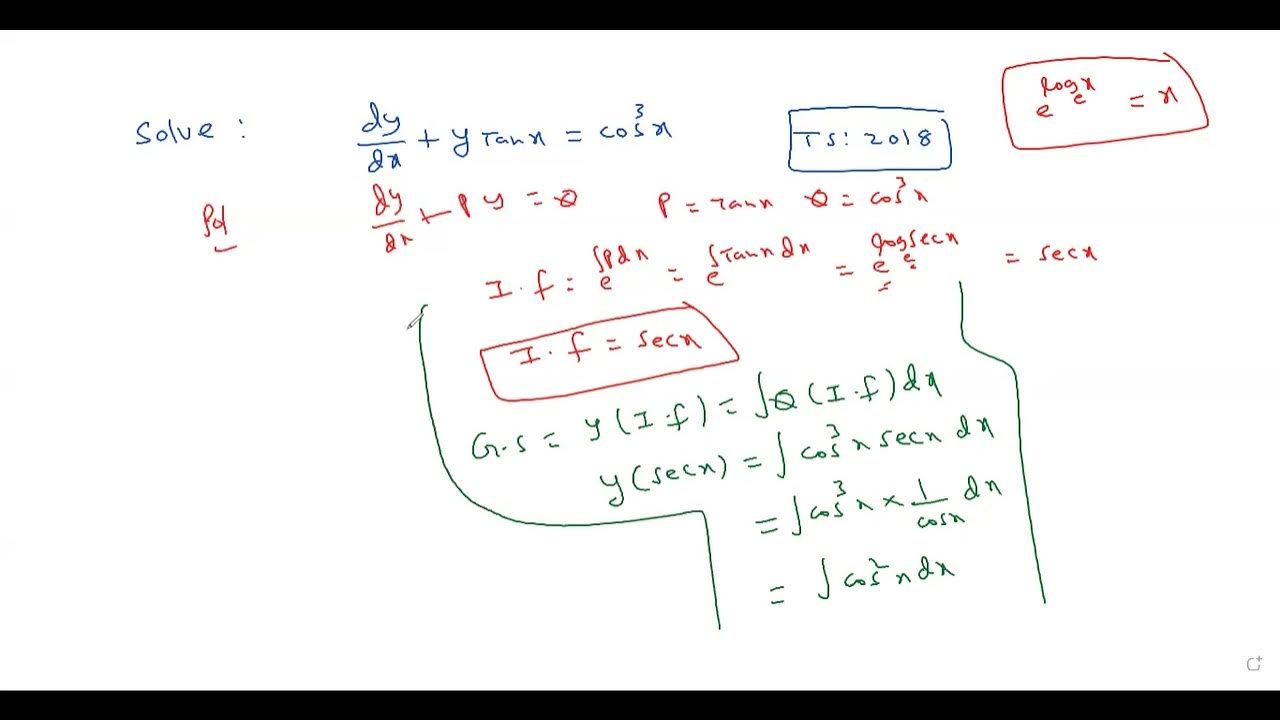 Solve : dy/dx + y Tanx = cos³x TS: 2018 e^(log_e x) = x
Sol dy/dx + P y = Q P = Tanx Q = cos³x
I.f = e^(∫Pdx) = e^(∫Tanx dx) = e^(log_e secx) = secx
I.f = secx
G.S = y (I.f) = ∫Q (I.f) dx
y (secx) = ∫ cos³x secx dx
= ∫ cos³x × 1/cosx dx
= ∫ cos²x dx